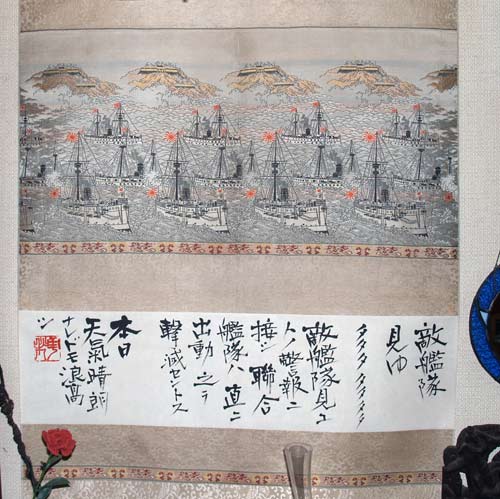 敵艦隊
見ゆ
タタタタ タタタタ
敵艦隊見ユ
トノ警報ニ
接シ聯合
艦隊ハ直ニ
出動之ヲ
撃滅セントス
本日
天氣晴朗
ナレドモ浪高
シ